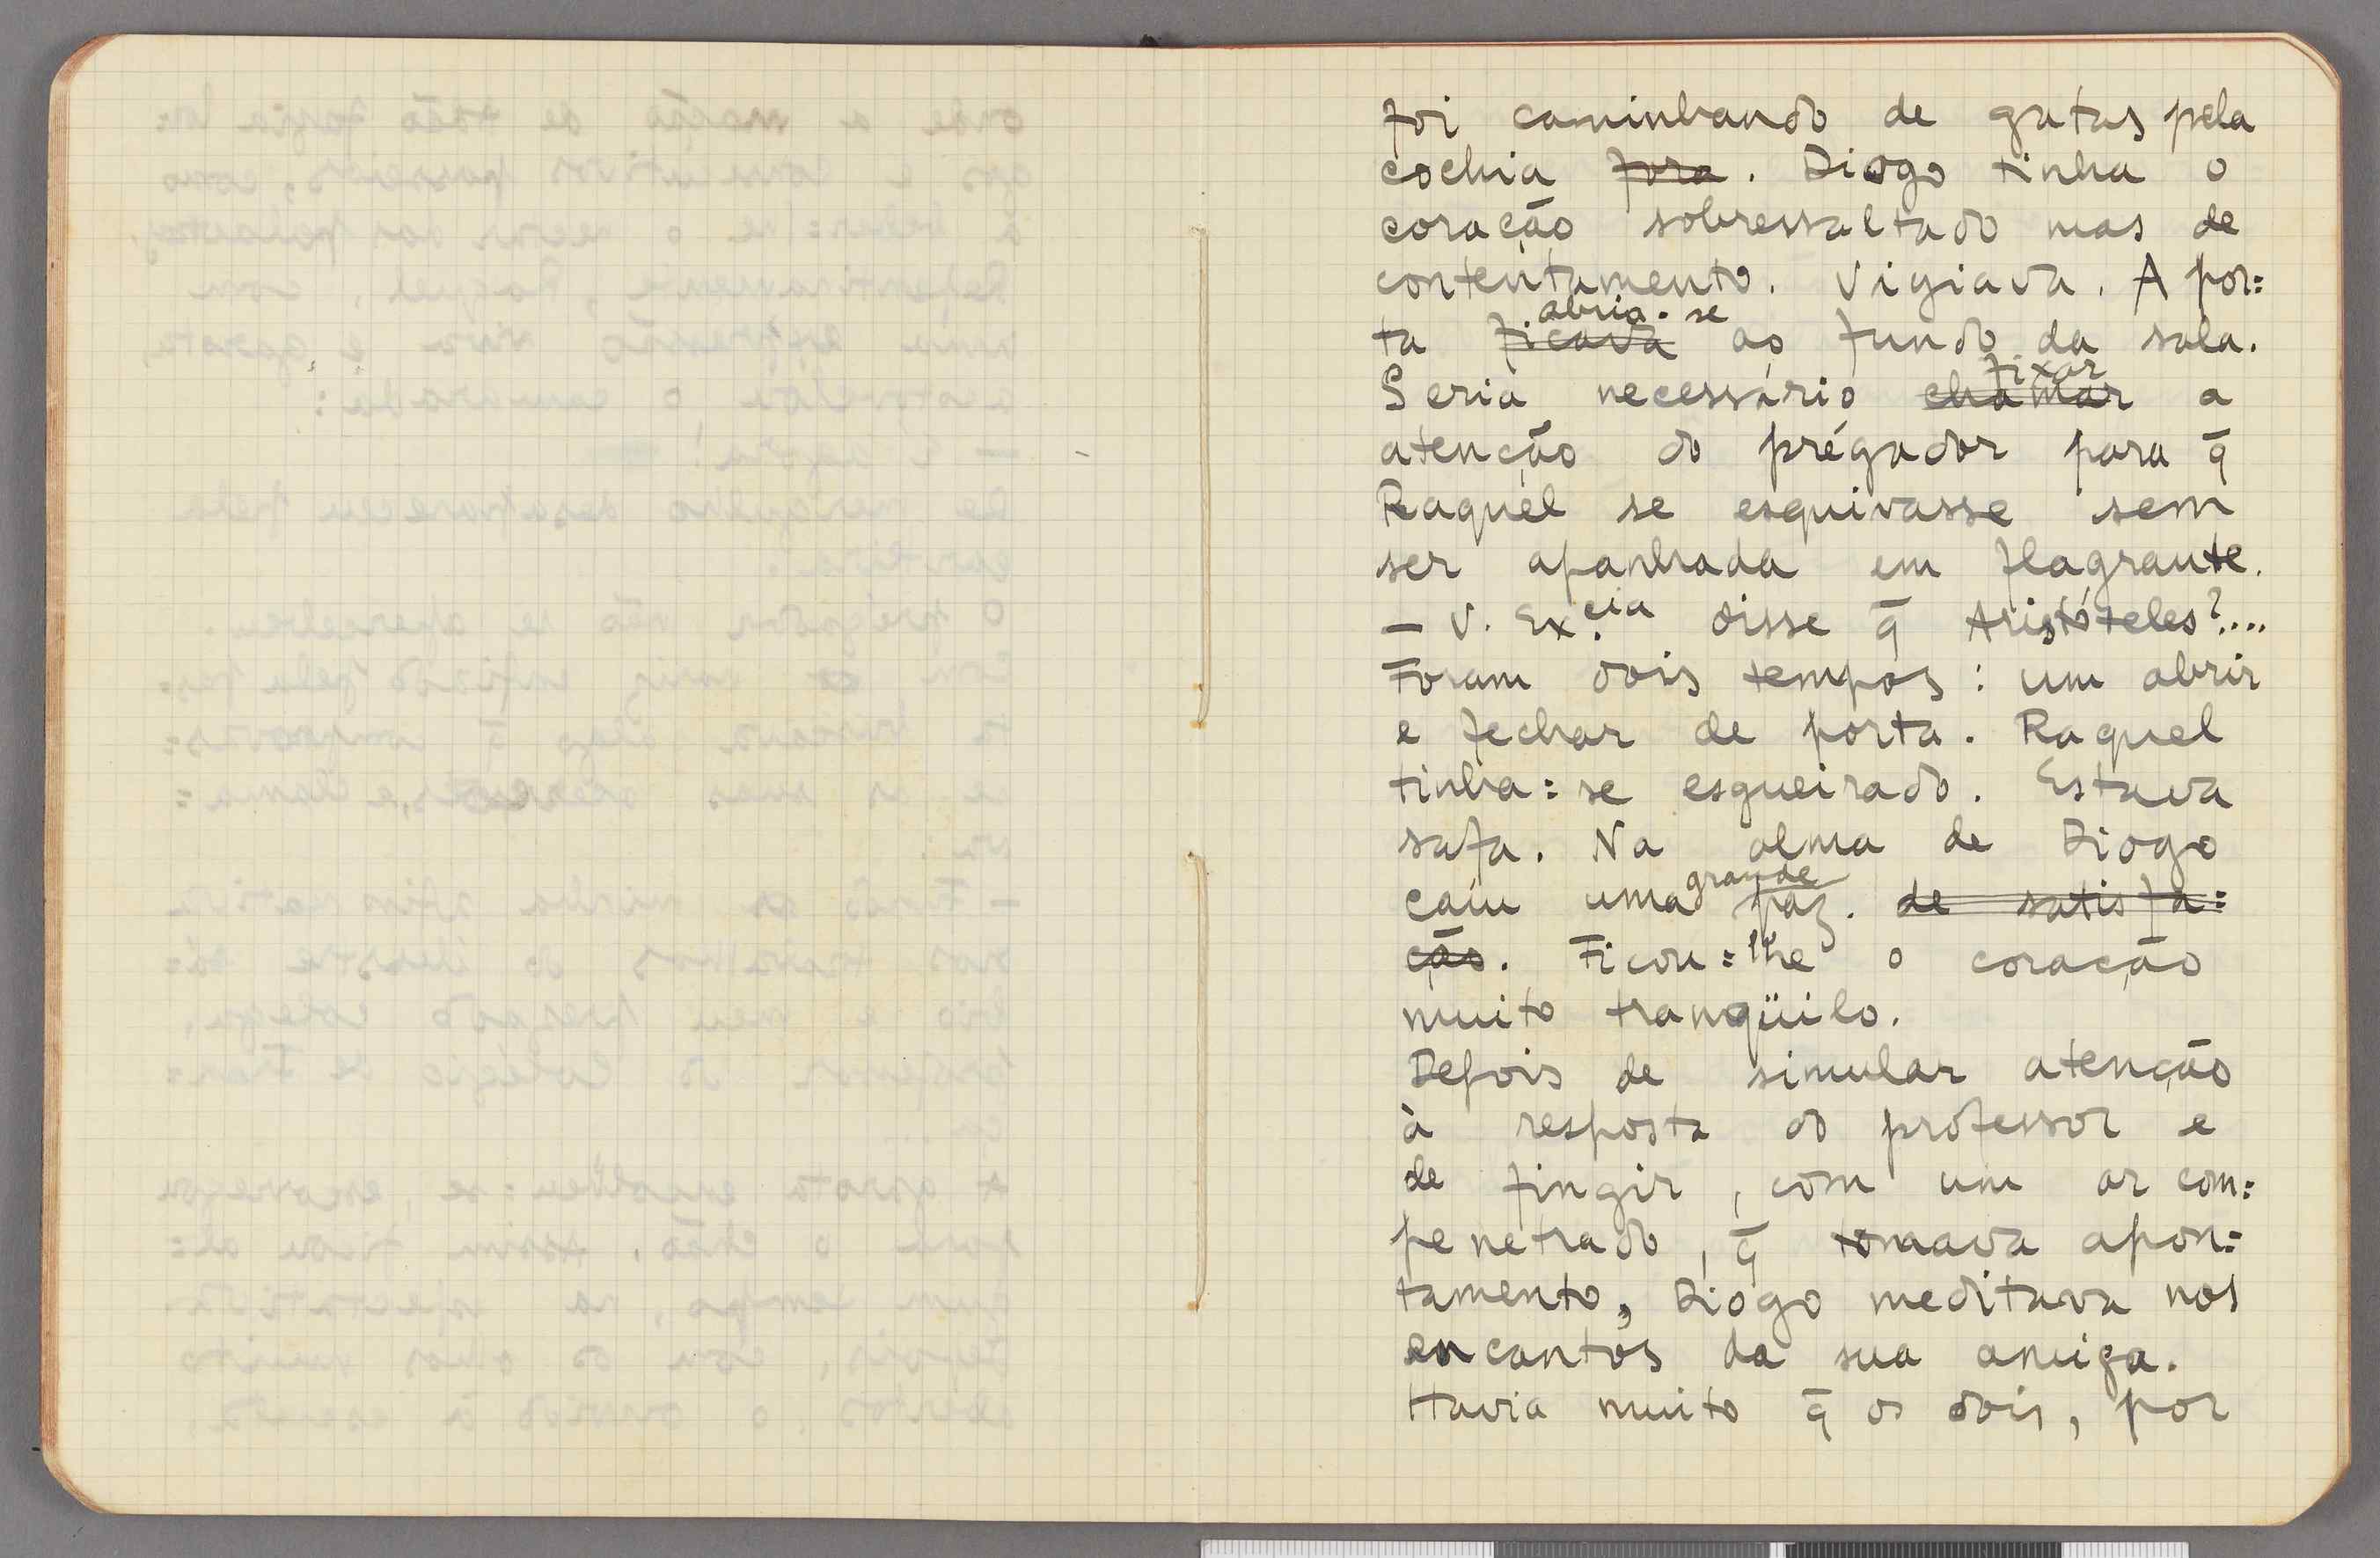 foi caminhando de gatas pela
cochia fora. Diogo tinha o
coração sobressaltado mas de
contentamento. Vigiava. A por=
abria-se
ta ficava ao fundo da sala.
fixar
Seria necessário chamar a
atenção do prégador para q̄
Raquel se esquivasse sem
ser apanhada em flagrante.
— V. Ex.cia disse q̄ Aristóteles?....
Foram dois tempos: um abrir
e fechar de porta. Raquel
tinha=se esgueirado. Estava
safa. Na alma de Diogo
grande
caiu uma paz. de satisfa=
ção. Ficou=lhe o coração
muito tranqüilo.
Depois de simular atenção
à resposta do professor e
de fingir, com um ar com=
penetrado, q̄ tomava apon=
tamento, Diogo meditava nos
encantos da sua amiga.
Havia muito q̄ os dois, por